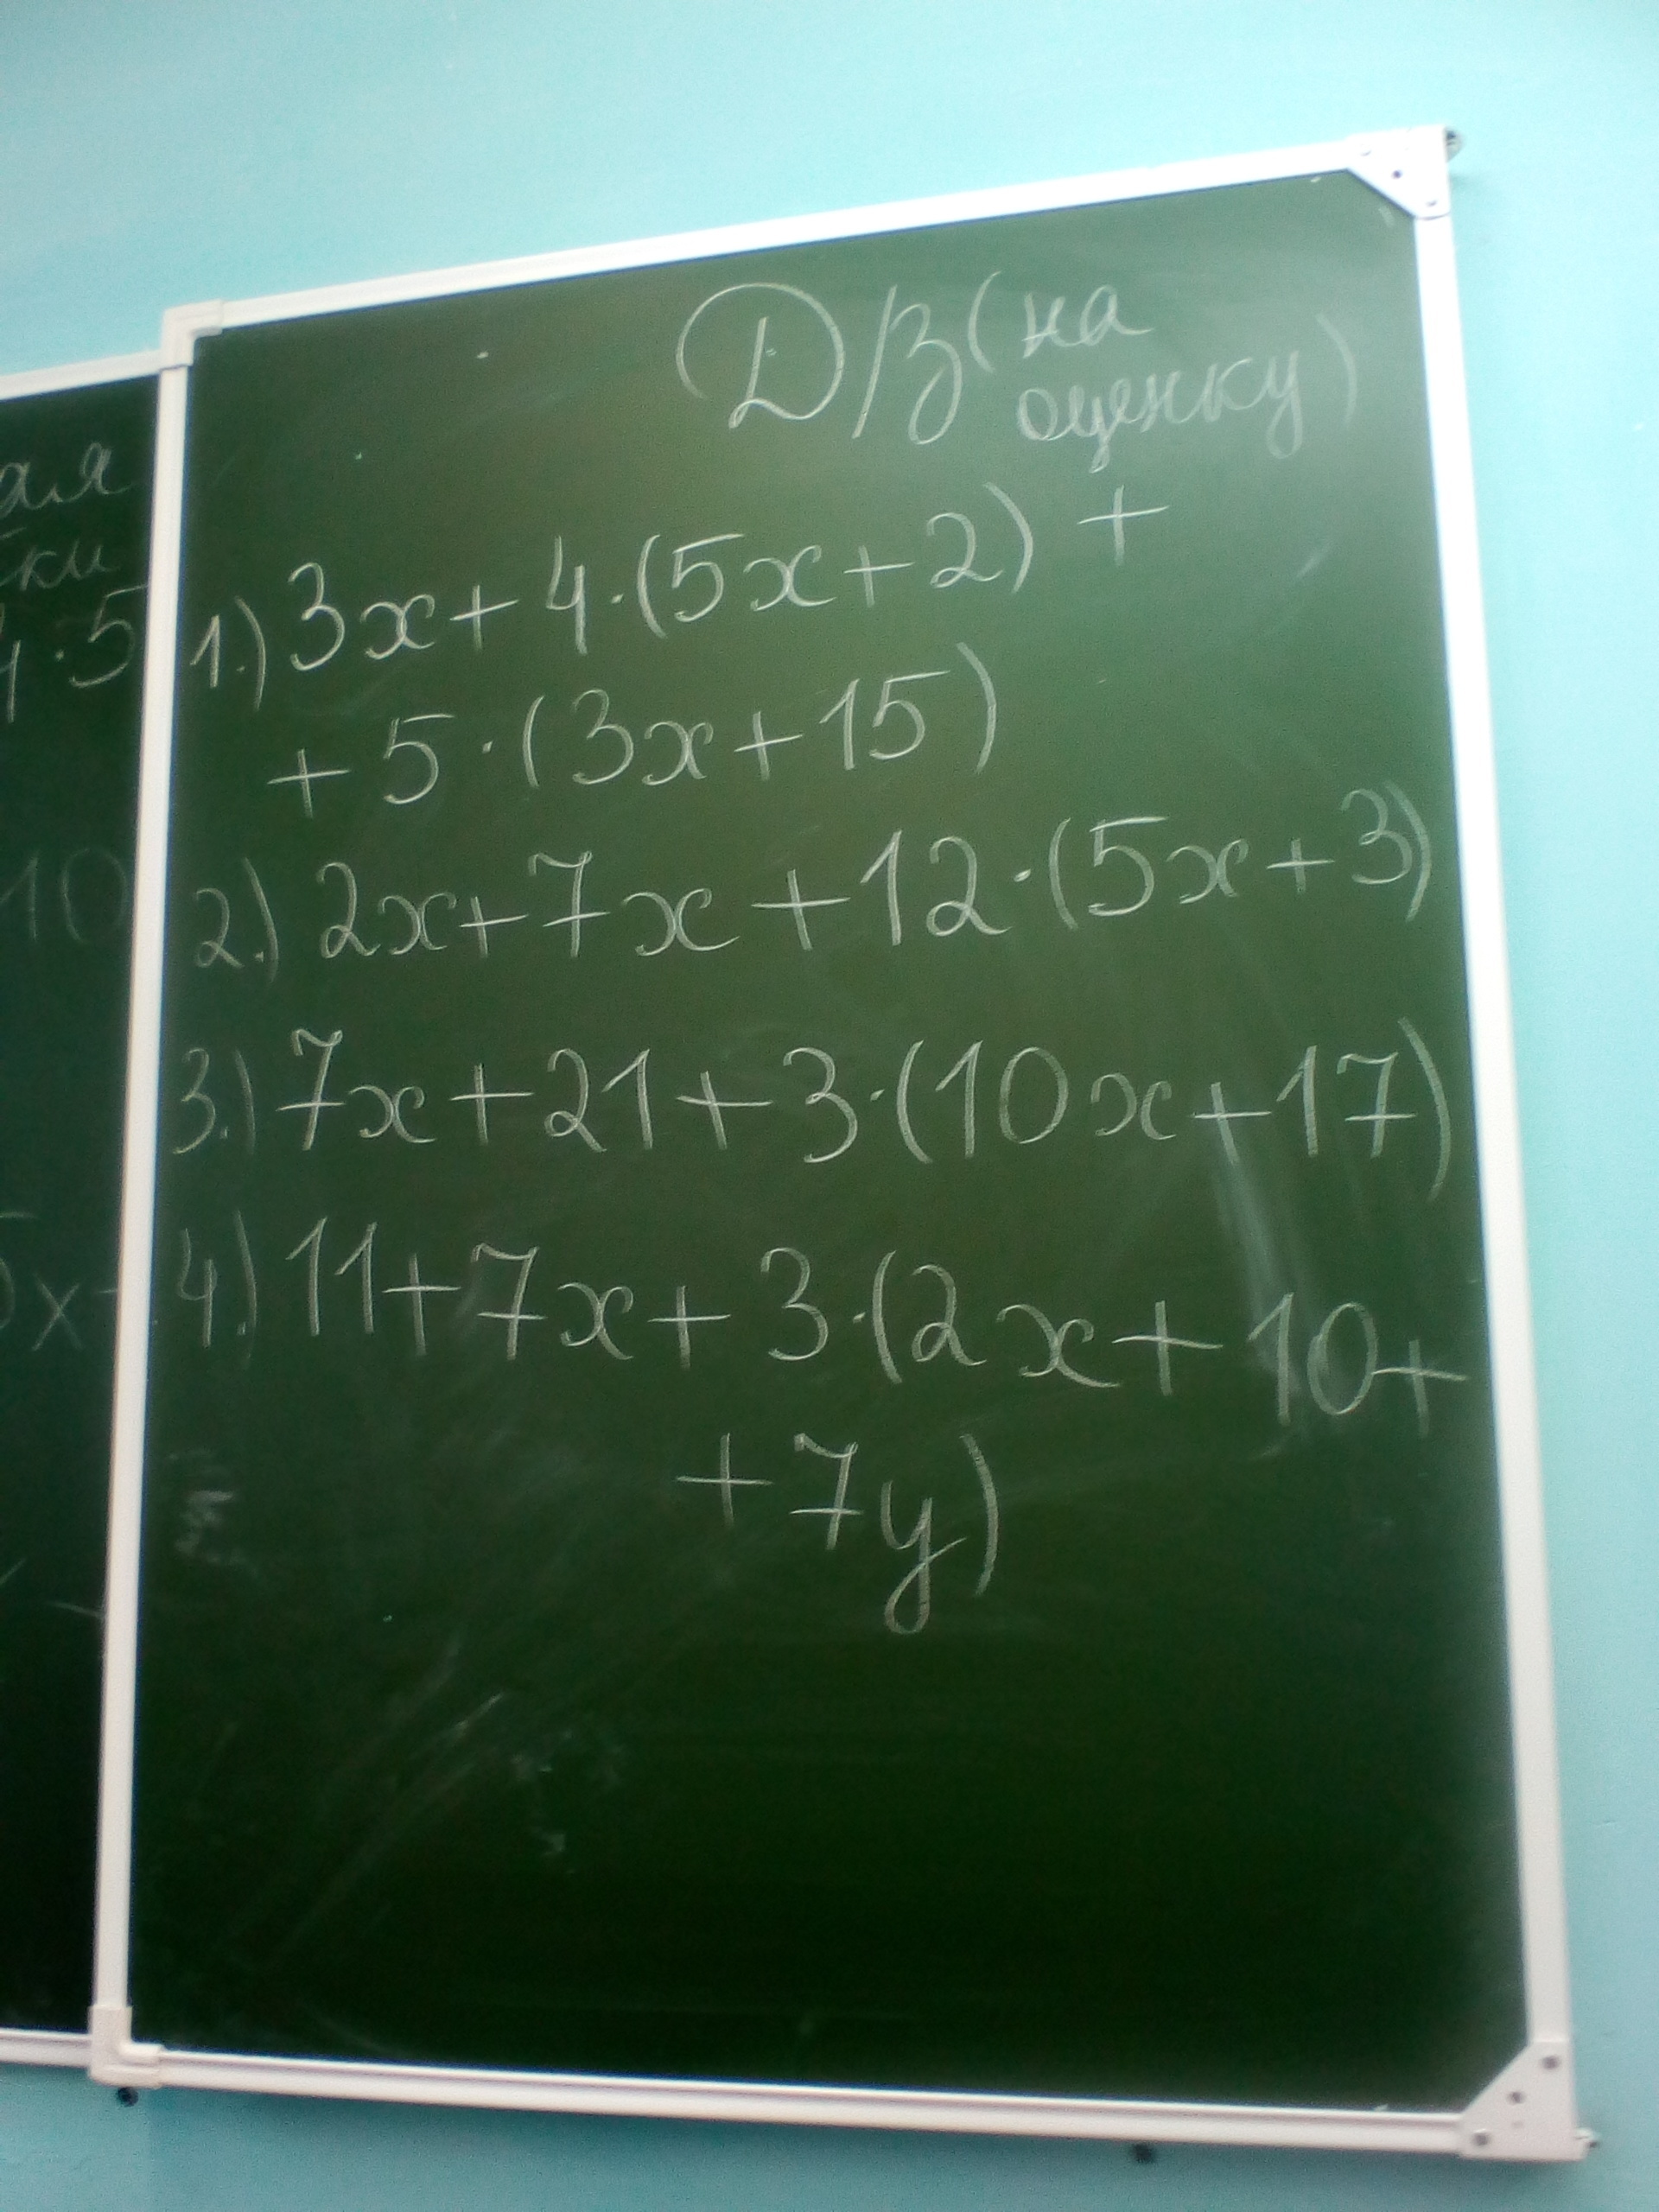 Д/З (на
оценку)
ая
ки
4·5
1.) 3x+4·(5x+2)+
+5·(3x+15)
10
2.) 2x+7x+12·(5x+3)
3.) 7x+21+3·(10x+17)
4.) 11+7x+3·(2x+10+
+7y)